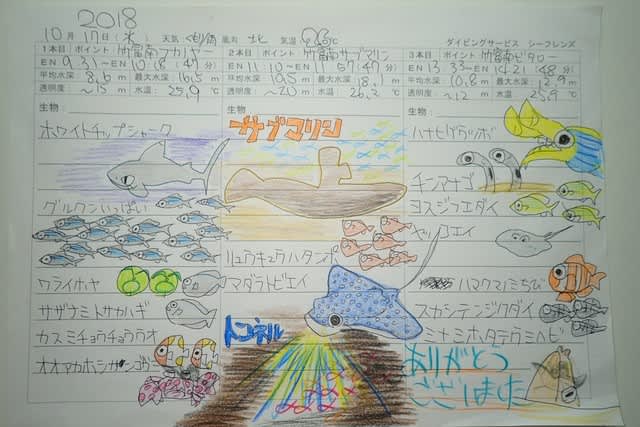 2018
10月17日(水) 天気 くもり/雨 風向 北 気温 26℃
ダイビングサービス シーフレンズ
1本目 ポイント 竹富南アカリヤー
EN 9:31~EN 10:18 (47分)
平均水深 8.6m 最大水深 16.5m
透明度 ~15m 水温: 25.9℃
生物:
ホワイトチップシャーク
グルクンいっぱい
ワライボヤ
サザナミトサカハギ
カスミチョウチョウウオ
オオアカホシサンゴガニ
2本目 ポイント 竹富南サブマリン
平均水深 10.5m 最大水深 18.1m
透明度 ~20m 水温: 26.2℃
生物:
サブマリン
リュウキュウハタンポ
マダラトビエイ
トンネル
3本目 ポイント 竹富南ビタロー
EN 13:33~EN 14:21 (48分)
平均水深 10.8m 最大水深 m
透明度 ~12m 水温: 25.9℃
生物:
ハナヒゲウツボ
チンアナゴ
ヨスジフエダイ
ヤッコエイ
ハマクマノミちび
スカシテンジクダイ
ミナミホタテウミヘビ
ありがとう
ございました